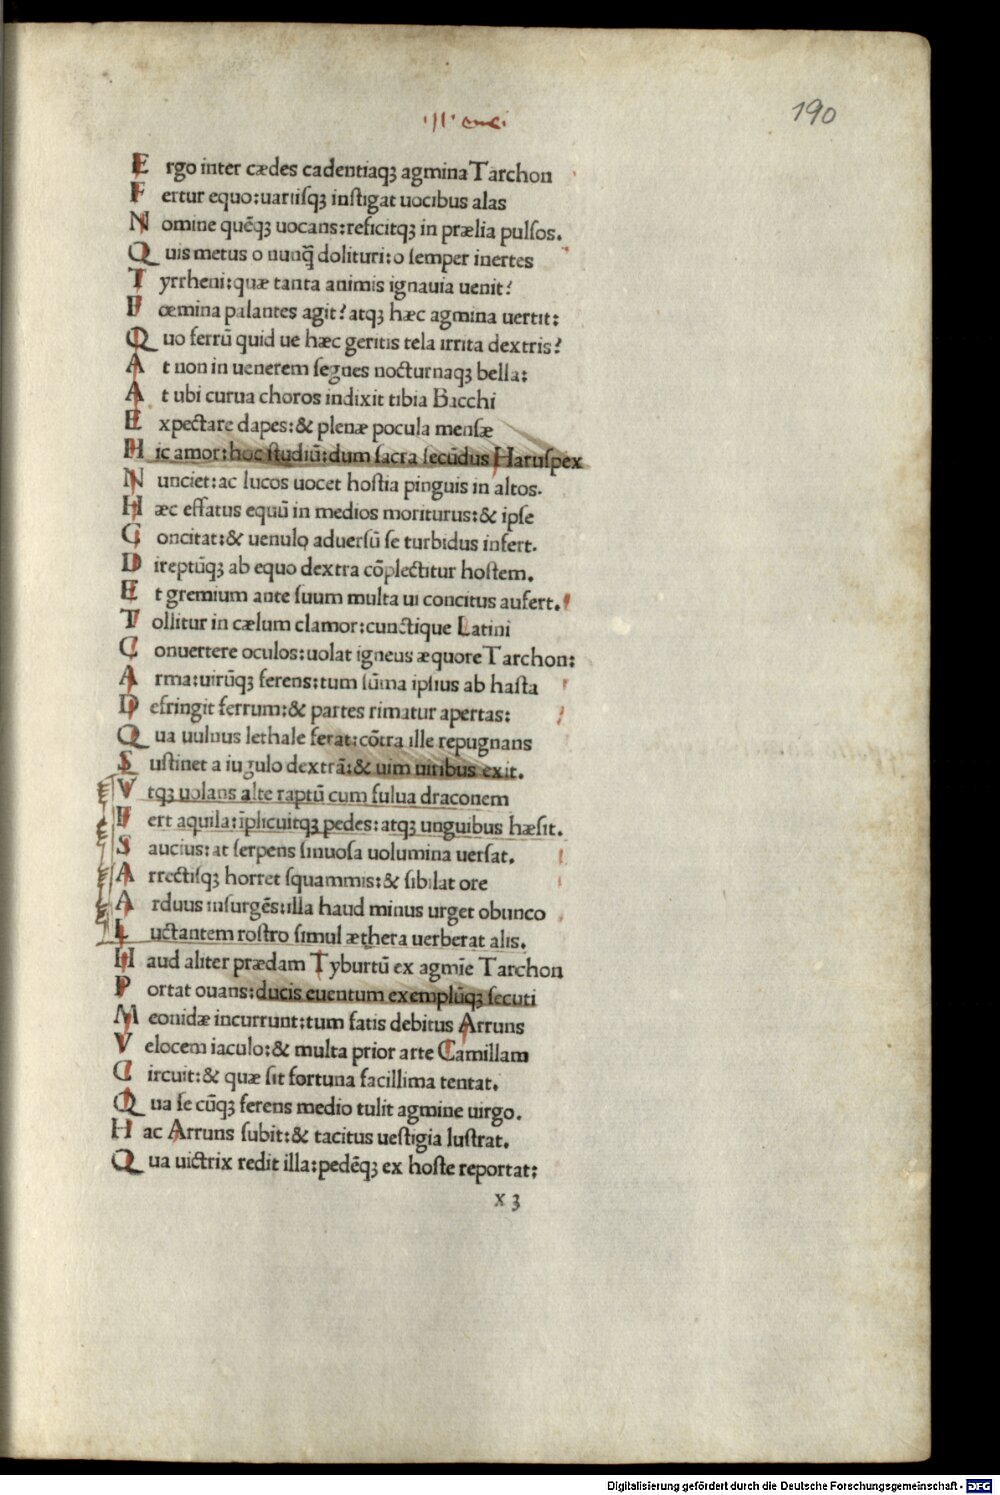 190
E rgo inter cædes cadentiaqꝫ agmina Tarchon
F ertur equo:uariisqꝫ instigat uocibus alas
N omine quēqꝫ uocans:reficitqꝫ in prælia pulsos.
Q uis metus o nunq̄ dolituri:o semper inertes
T yrrheni:quæ tanta animis ignauia uenit?
F œmina palantes agit? atqꝫ hæc agmina uertit:
Q uo ferrū quid ue hæc geritis tela irrita dextris?
A t non in uenerem segnes nocturnaqꝫ bella:
A t ubi curua choros indixit tibia Bacchi
E xpectare dapes:& plenæ pocula mensæ
H ic amor:hoc studiū:dum sacra secūdus Haruspex
N unciet:ac lucos uocet hostia pinguis in altos.
H æc effatus equū in medios moriturus:& ipse
C oncitat:& uenulo aduersū se turbidus infert.
D ireptūqꝫ ab equo dextra cōplectitur hostem.
E t gremium ante suum multa ui concitus aufert.
T ollitur in cælum clamor:cunctique Latini
C onuertere oculos:uolat igneus æquore Tarchon:
A rma:uirūqꝫ ferens:tum sūma ipsius ab hasta
D efringit ferrum:& partes rimatur apertas:
Q ua uulnus lethale ferat:cōtra ille repugnans
S ustinet a iugulo dextrā:& uim uiribus exit.
V tqꝫ uolans alte raptū cum fulua draconem
F ert aquila:īplicuitqꝫ pedes:atqꝫ unguibus hæsit.
S aucius:at serpens sinuosa uolumina uersat.
A rrectisqꝫ horret squammis:& sibilat ore
A rduus insurgēs:illa haud minus urget obunco
L uctantem rostro simul æthera uerberat alis.
H aud aliter prædam Tyburtū ex agmīe Tarchon
P ortat ouans:ducis euentum exemplūqꝫ secuti
M eonidæ incurrunt:tum fatis debitus Arruns
V elocem iaculo:& multa prior arte Camillam
C ircuit:& quæ sit fortuna facillima tentat.
Q ua se cūqꝫ ferens medio tulit agmine uirgo.
H ac Arruns subit:& tacitus uestigia lustrat.
Q ua uictrix redit illa:pedēqꝫ ex hoste reportat:
x 3
Digitalisierung gefördert durch die Deutsche Forschungsgemeinschaft - DFG